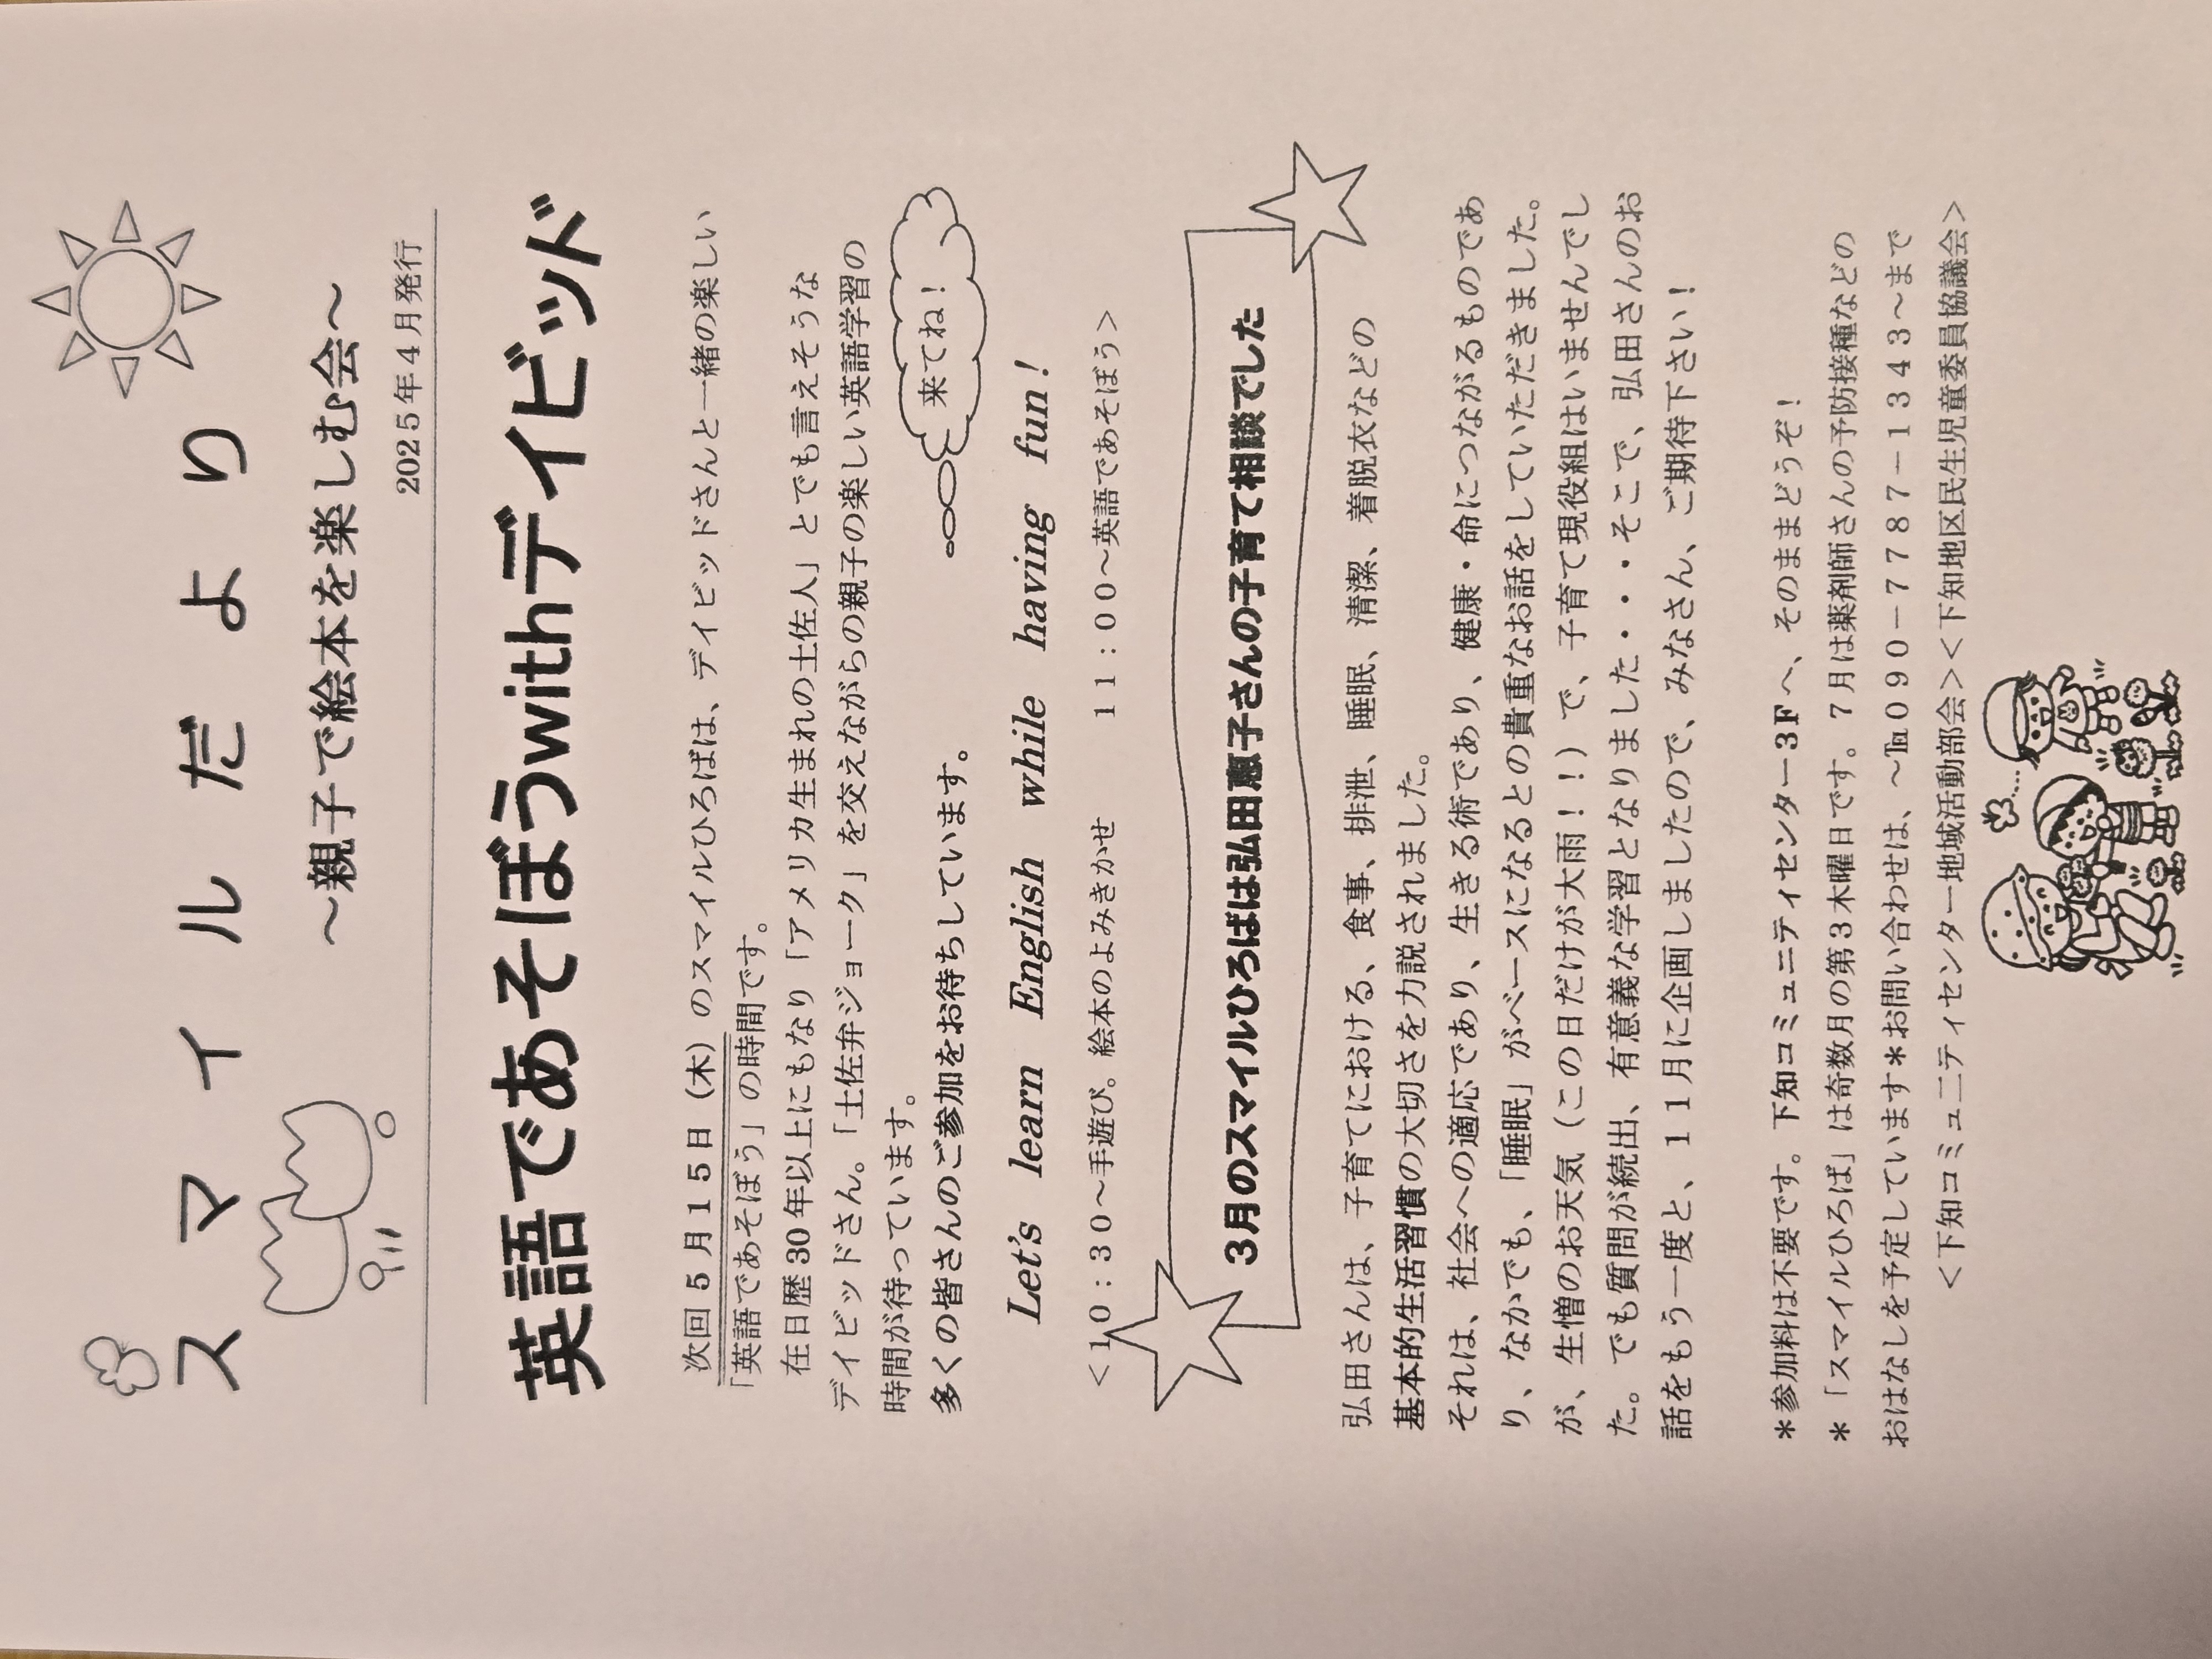 スマイルだより
～親子で絵本を楽しむ会～
2025年4月発行
英語であそぼうwithデイビッド
次回5月15日（木）のスマイルひろばは、デイビッドさんと一緒の楽しい
「英語であそぼう」の時間です。
在日歴30年以上にもなり「アメリカ生まれの土佐人」とでも言えそうな
デイビッドさん。「土佐弁ジョーク」を交えながらの親子の楽しい英語学習の
時間が待っています。
多くの皆さんのご参加をお待ちしています。
来てね！
Let's learn English while having fun!
＜10：30～手遊び。絵本のよみきかせ　11：00～英語であそぼう＞
3月のスマイルひろばは弘田恵子さんの子育て相談でした
弘田さんは、子育てにおける、食事、排泄、睡眠、清潔、着脱衣などの
基本的生活習慣の大切さを力説されました。
それは、社会への適応であり、生きる術であり、健康・命につながるものであ
り、なかでも、「睡眠」がベースになるとの貴重なお話をしていただきました。
が、生憎のお天気（この日だけが大雨！！）で、子育て現役組はいませんでし
た。でも質問が続出、有意義な学習となりました・・・そこで、弘田さんのお
話をもう一度と、11月に企画しましたので、みなさん、ご期待下さい！
＊参加料は不要です。下知コミュニティセンター3Fへ、そのままどうぞ！
＊「スマイルひろば」は奇数月の第3木曜日です。7月は薬剤師さんの予防接種などの
おはなしを予定しています＊お問い合わせは、～℡090－7787－1343～まで
＜下知コミュニティセンター地域活動部会＞＜下知地区民生児童委員協議会＞